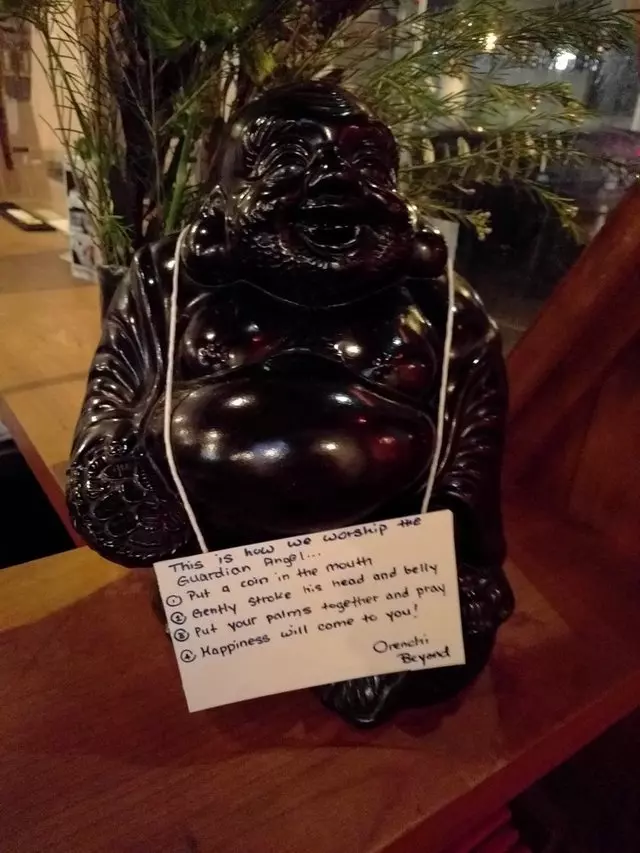 This is how we worship the
Guardian Angel...
① Put a coin in the mouth
② Gently stroke his head and belly
③ Put your palms together and pray
④ Happiness will come to you!
Orenchi
Beyond